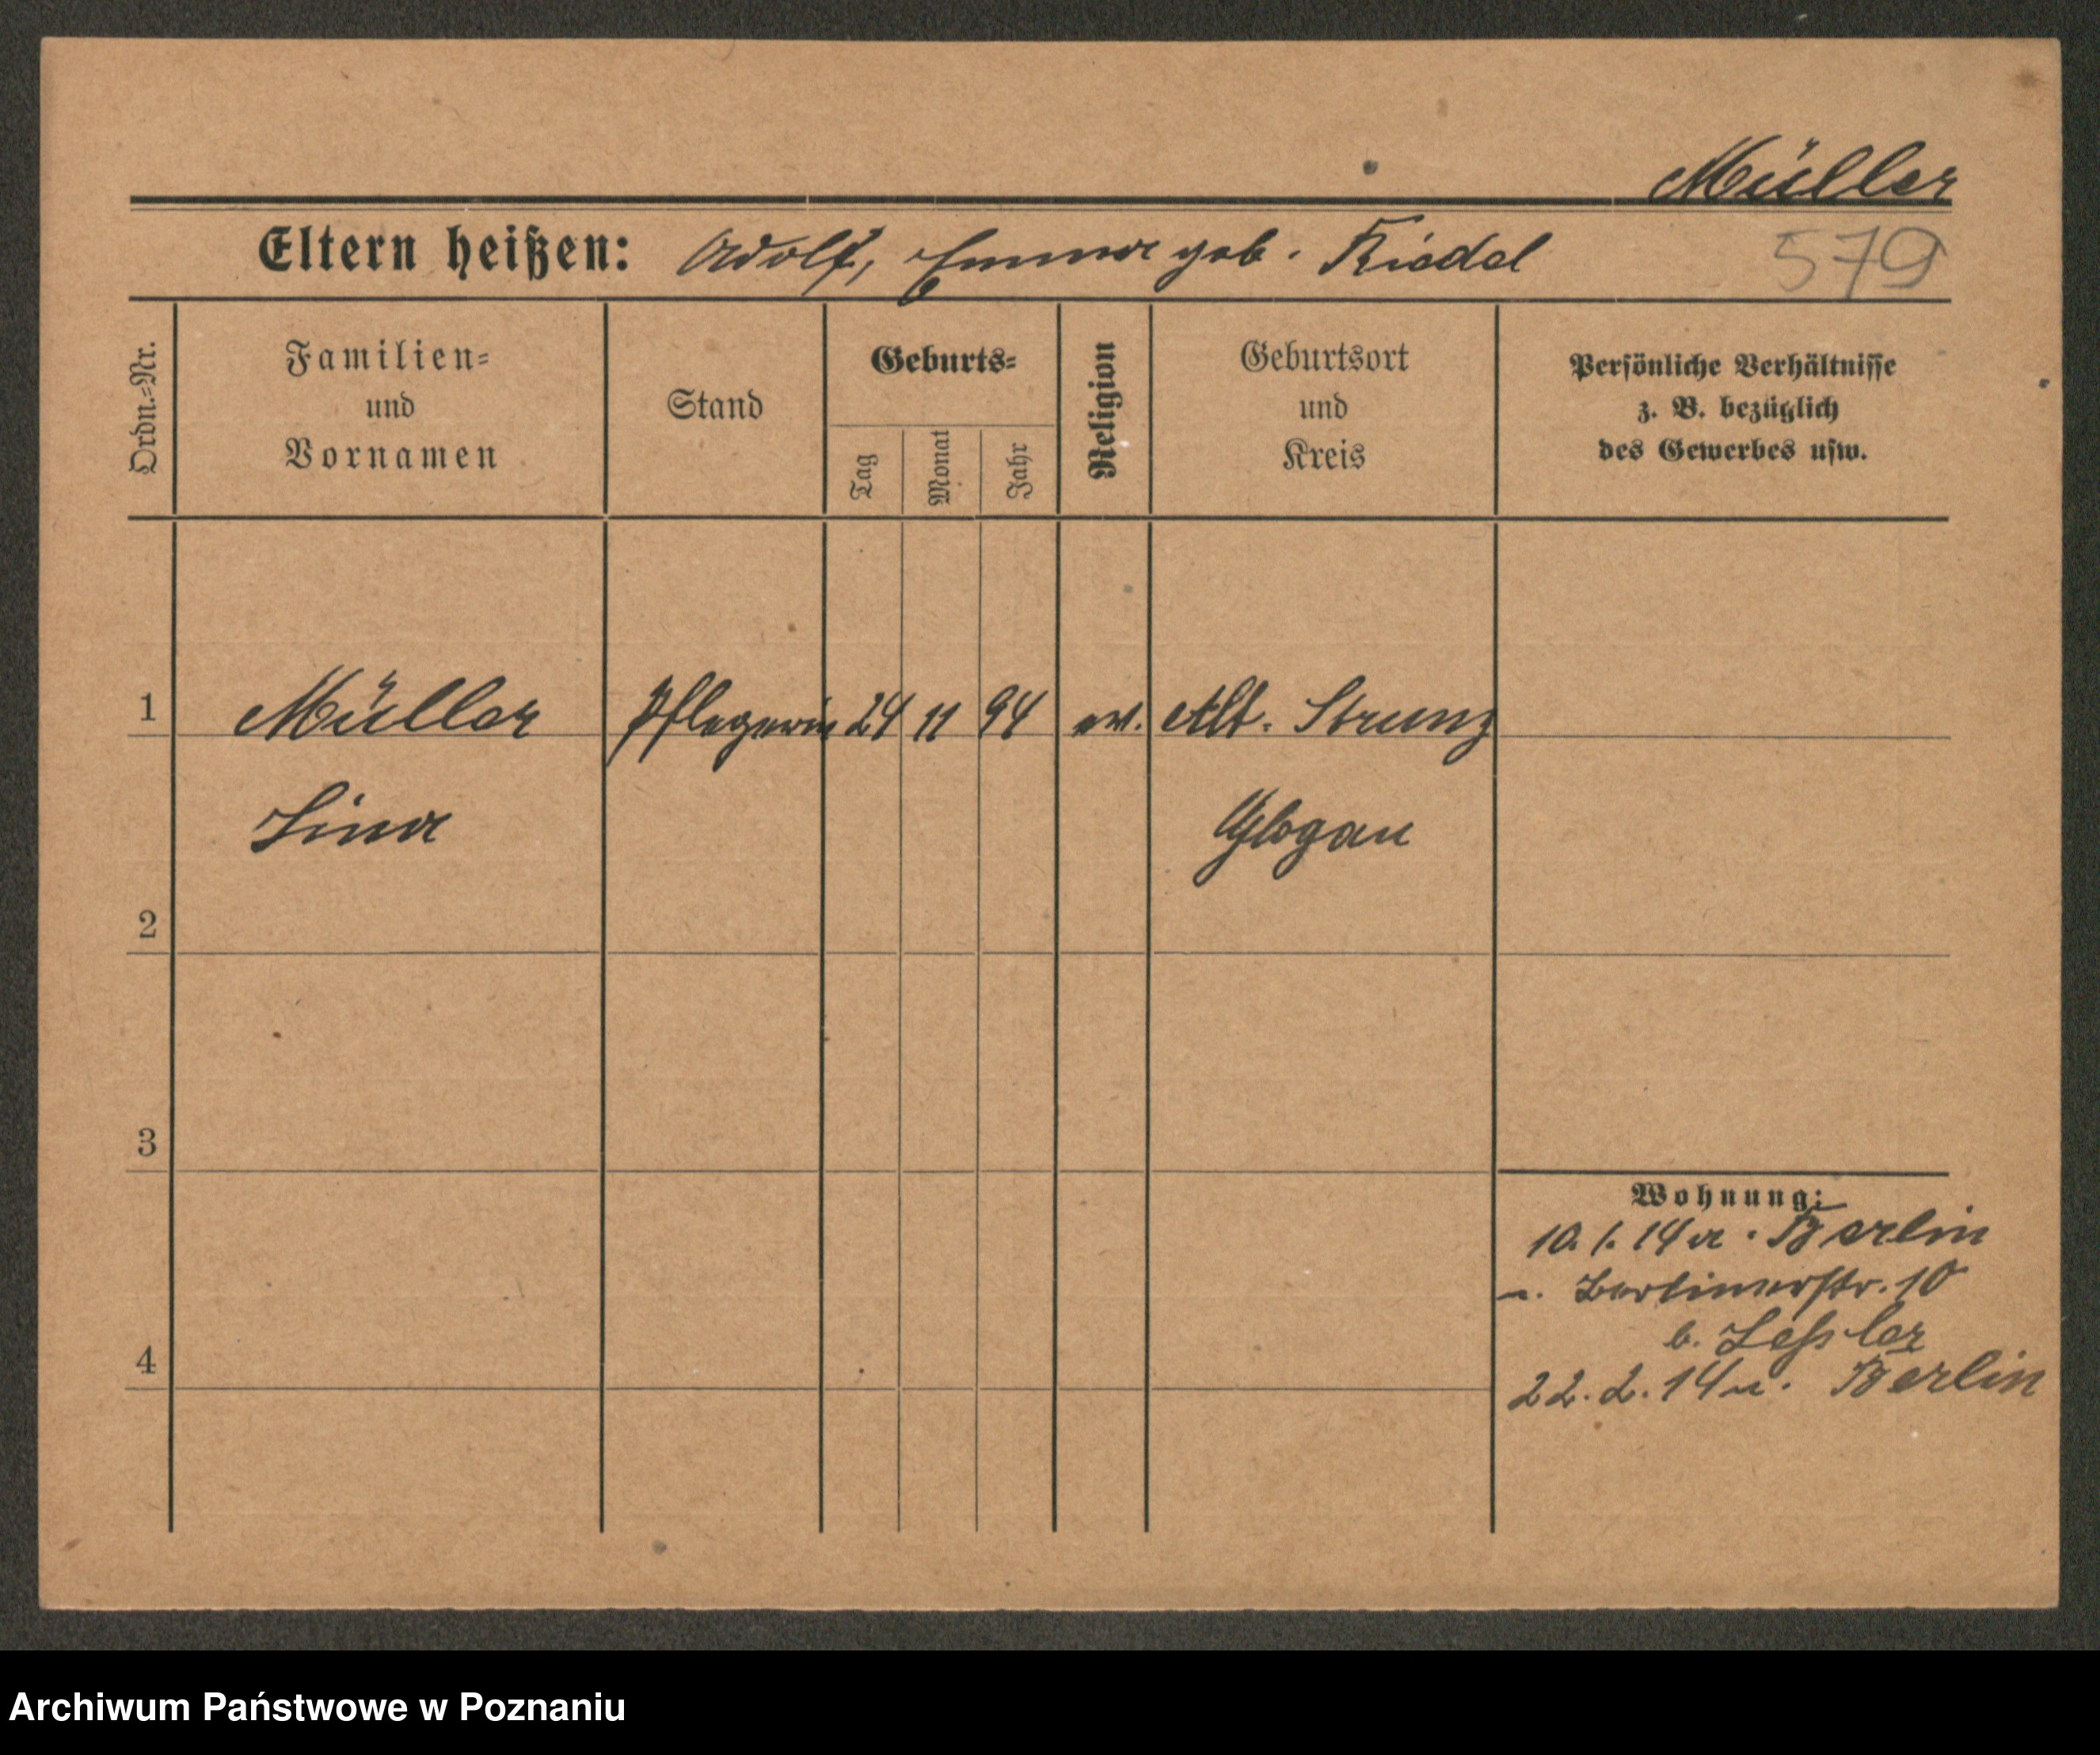 Müller
Eltern heißen: Adolf, Emma geb. Riedel
579
Ordn.-Nr.
Familien-
und
Vornamen
Stand
Geburts-
Tag
Monat
Jahr
Religion
Geburtsort
und
Kreis
Persönliche Verhältnisse
z. B. bezüglich
des Gewerbes usw.
1 Müller Pflegerin 24 11 94 ev. Alt-Strunz
Lina Glogau
2
3
4
Wohnung:
10. 1. 14 a. Berlin
n. Berlinerstr. 10
b. Leßler
22. 2. 14 n. Berlin
Archiwum Państwowe w Poznaniu